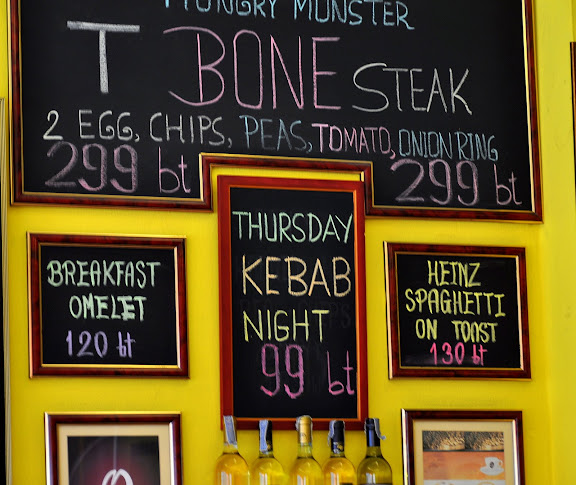 HUNGRY MONSTER
T BONE STEAK
2 EGG, CHIPS, PEAS, TOMATO, ONION RING
299 bt 299 bt
THURSDAY
KEBAB
NIGHT
99 bt
BREAKFAST
OMELET
120 bt
HEINZ
SPAGHETTI
ON TOAST
130 bt